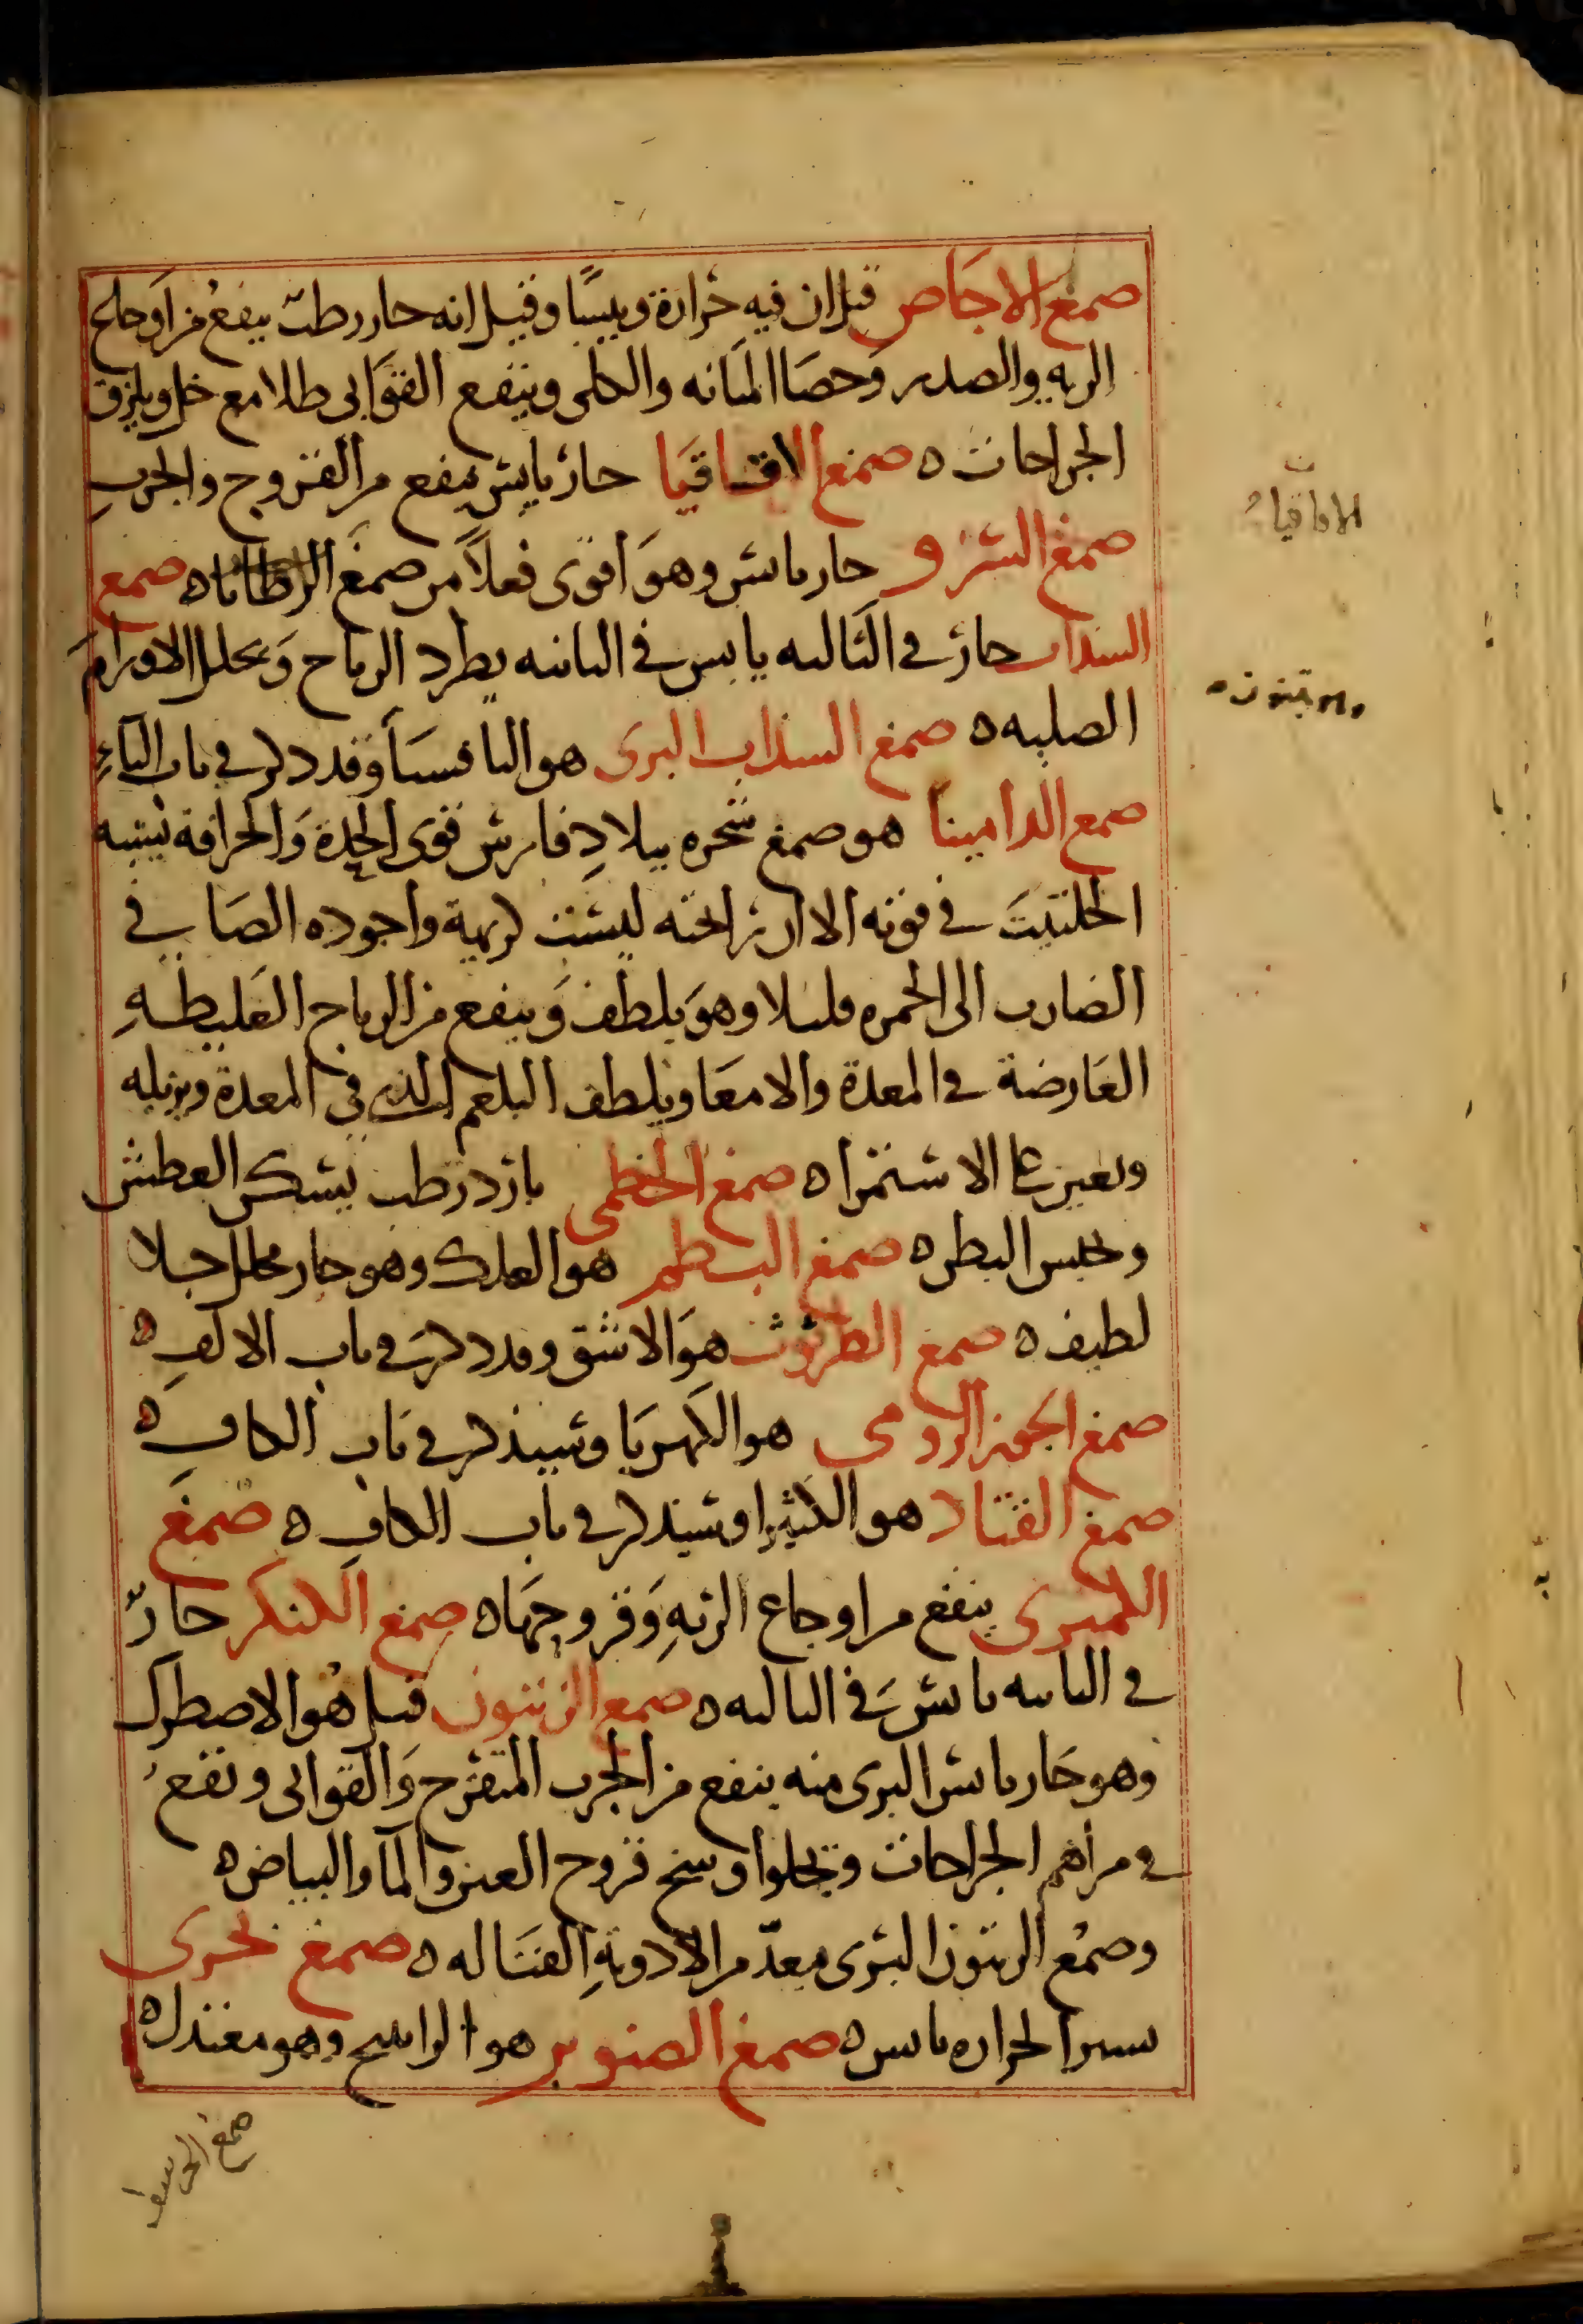 صمغ الاجاص قيل ان فيه حرارة ويبسًا وقيل انه حار رطب ينفع من اوجاع
الريه والصدر وحصا المثانه والكلى وينفع القوابى طلا مع خل ويلزق
الجراحات ه صمغ الاقاقيا حار يابس ينفع من القروح والجرب
صمغ السرو حار يابس وهو أقوى فعلاً من صمغ ه صمغ
السداب حار فى الثالثه يابس فى الثانيه يطرد الرياح ويحلل الاورام
الصلبه ه صمغ السذاب البرى هو الثافسيا وقد ذكر فى باب الثاء
صمغ الدامينا هو صمغ شجره ببلاد فارس قوى الحدة والحرافة يشبه
الحلتيت فى قوته الا ان رائحته ليست كريهة واجوده الصافى
الضارب الى الحمره قليلا وهو يلطف وينفع من الرياح الغليظه
العارضة فى المعدة والامعا ويلطف البلغم الذى فى المعدة ويزيله
ويعين على الاستمرا ه صمغ الخطمى بارد رطب يسكن العطش
وحبس البطن ه صمغ البطم هو العلك وهو حار محلل جلا
لطيف ه صمغ الطرثوث هو الاشق وقد ذكر فى باب الالف ه
صمغ الجوز الرومى هو الكهربا وسيذكر فى باب الكاف ه
صمغ القتاد هو الكثيرا وسيذكر فى باب الكاف ه صمغ
الكمثرى ينفع من اوجاع الرئه وقروحها ه صمغ الكنكر حار
فى الثانيه يابس فى الثالثه ه صمغ الزيتون قيل هو الاصطرك
وهو حار يابس البرى منه ينفع من الجرب المتقرح والقوابى ويقع
فى مراهم الجراحات ويجلوا وسخ قروح العين والما والبياض ه
وصمغ الزيتون البرى يعد من الادوية القتاله ه صمغ
يسير الحراره يابس ه صمغ الصنوبر هو الراتينج وهو معتدل ه
الاقاقيا
صمغ